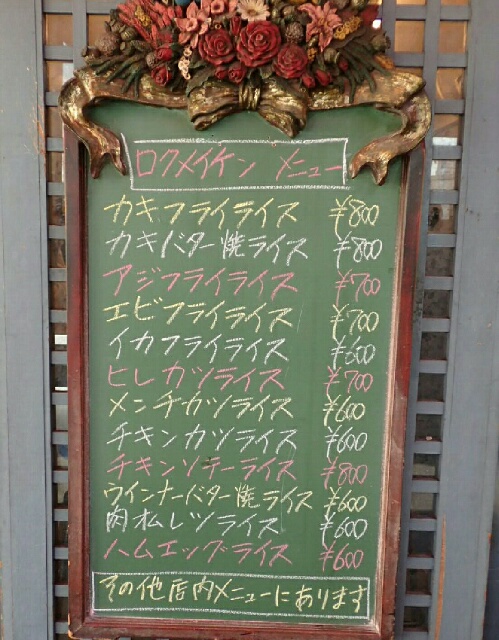 ロクメイケン メニュー
カキフライライス ¥800
カキバター焼ライス ¥800
アジフライライス ¥700
エビフライライス ¥700
イカフライライス ¥600
ヒレカツライス ¥700
メンチカツライス ¥600
チキンカツライス ¥600
チキンソテーライス ¥800
ウインナーバター焼ライス ¥600
肉オムレツライス ¥600
ハムエッグライス ¥600
その他店内メニューにあります